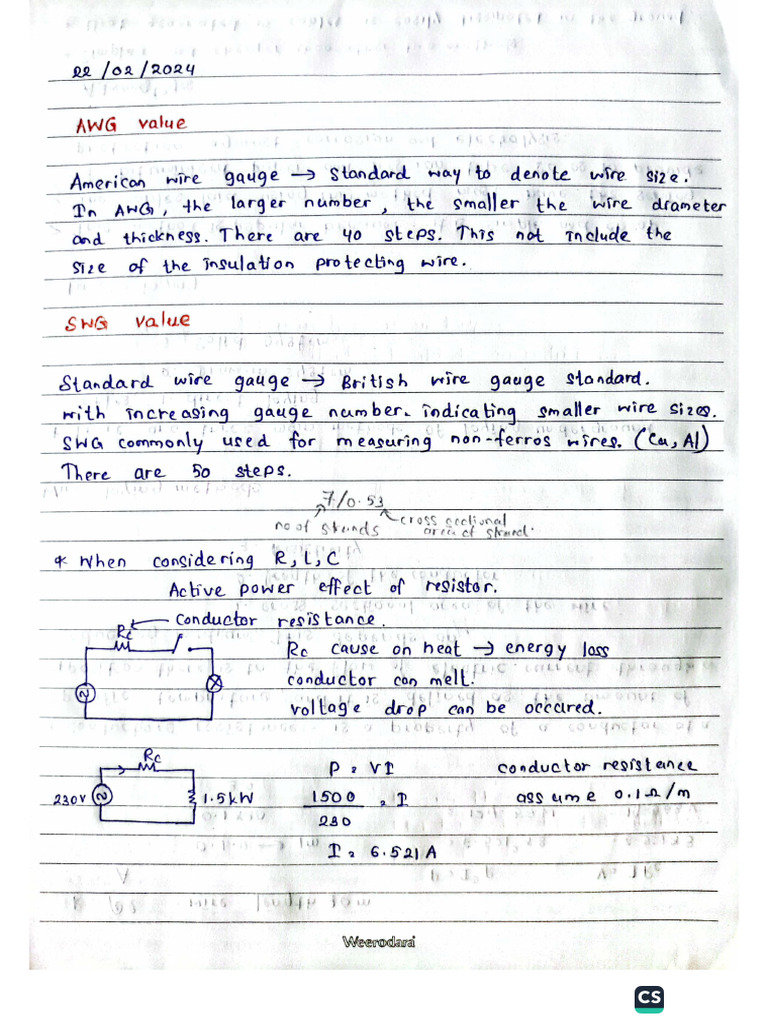 22/02/2024
AWG value
American wire gauge → Standard way to denote wire size.
In AWG, the larger number, the smaller the wire diameter
and thickness. There are 40 steps. This not include the
size of the insulation protecting wire.
SWG value
Standard wire gauge → British wire gauge standard.
with increasing gauge number. indicating smaller wire sizes.
SWG commonly used for measuring non-ferros wires. (Cu, Al)
There are 50 steps.
7/0.53
no of strands
cross sectional
area of strand.
* When considering R, L, C
Active power effect of resistor.
Rc ← conductor resistance.
Rc cause on heat → energy loss
conductor can melt.
voltage drop can be occured.
Rc
230V
1.5kW
P = VI
1500
230
= I
I = 6.521A
conductor resistance
assume 0.1Ω/m
Weerodara
CS